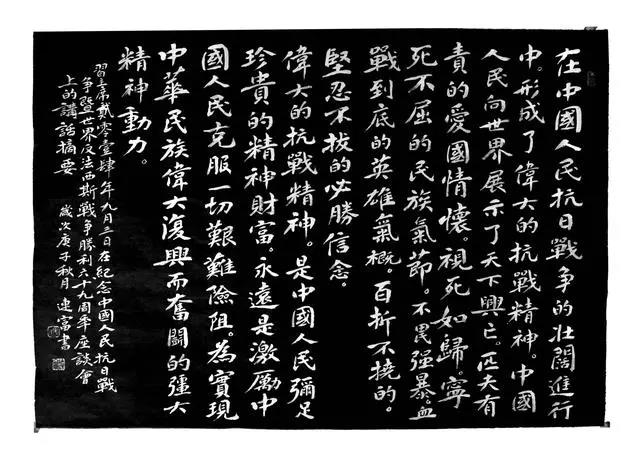 在中國人民抗日戰争的壯闊進行
中。形成了偉大的抗戰精神。中國
人民向世界展示了天下興亡。匹夫有
責的愛國情懷。視死如歸。寧
死不屈的民族氣節。不畏强暴。血
戰到底的英雄氣概。百折不撓的。
堅忍不拔的必勝信念。
偉大的抗戰精神。是中國人民彌足
珍貴的精神財富。永遠是激勵中
國人民克服一切艱難險阻。為實現
中華民族偉大復興而奮鬪的强大
精神動力。
習主席貳零壹肆年九月三日在紀念中國人民抗日戰
争暨世界反法西斯戰争勝利六十九周年座談會
上的講話摘要 歲次庚子秋月 連富書